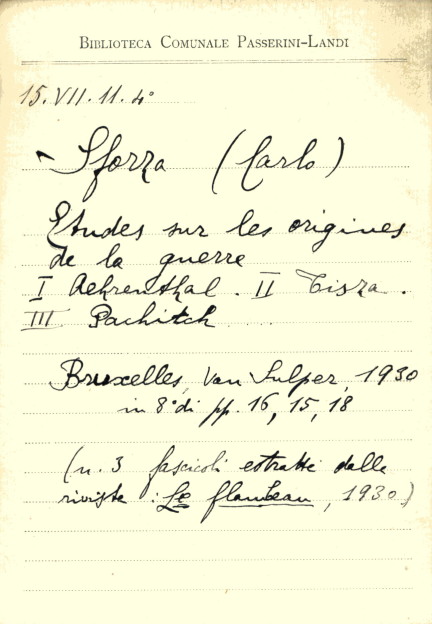 BIBLIOTECA COMUNALE PASSERINI-LANDI
15.VII.11.4°
Sforza (Carlo)
Etudes sur les origines
de la guerre
I Aehrenthal. II Tisza.
III Pachitch
Bruxelles, Van Sulper, 1930
in 8° di pp. 16, 15, 18
(n. 3 fascicoli estratti dalle
riviste: Le flambeau, 1930)